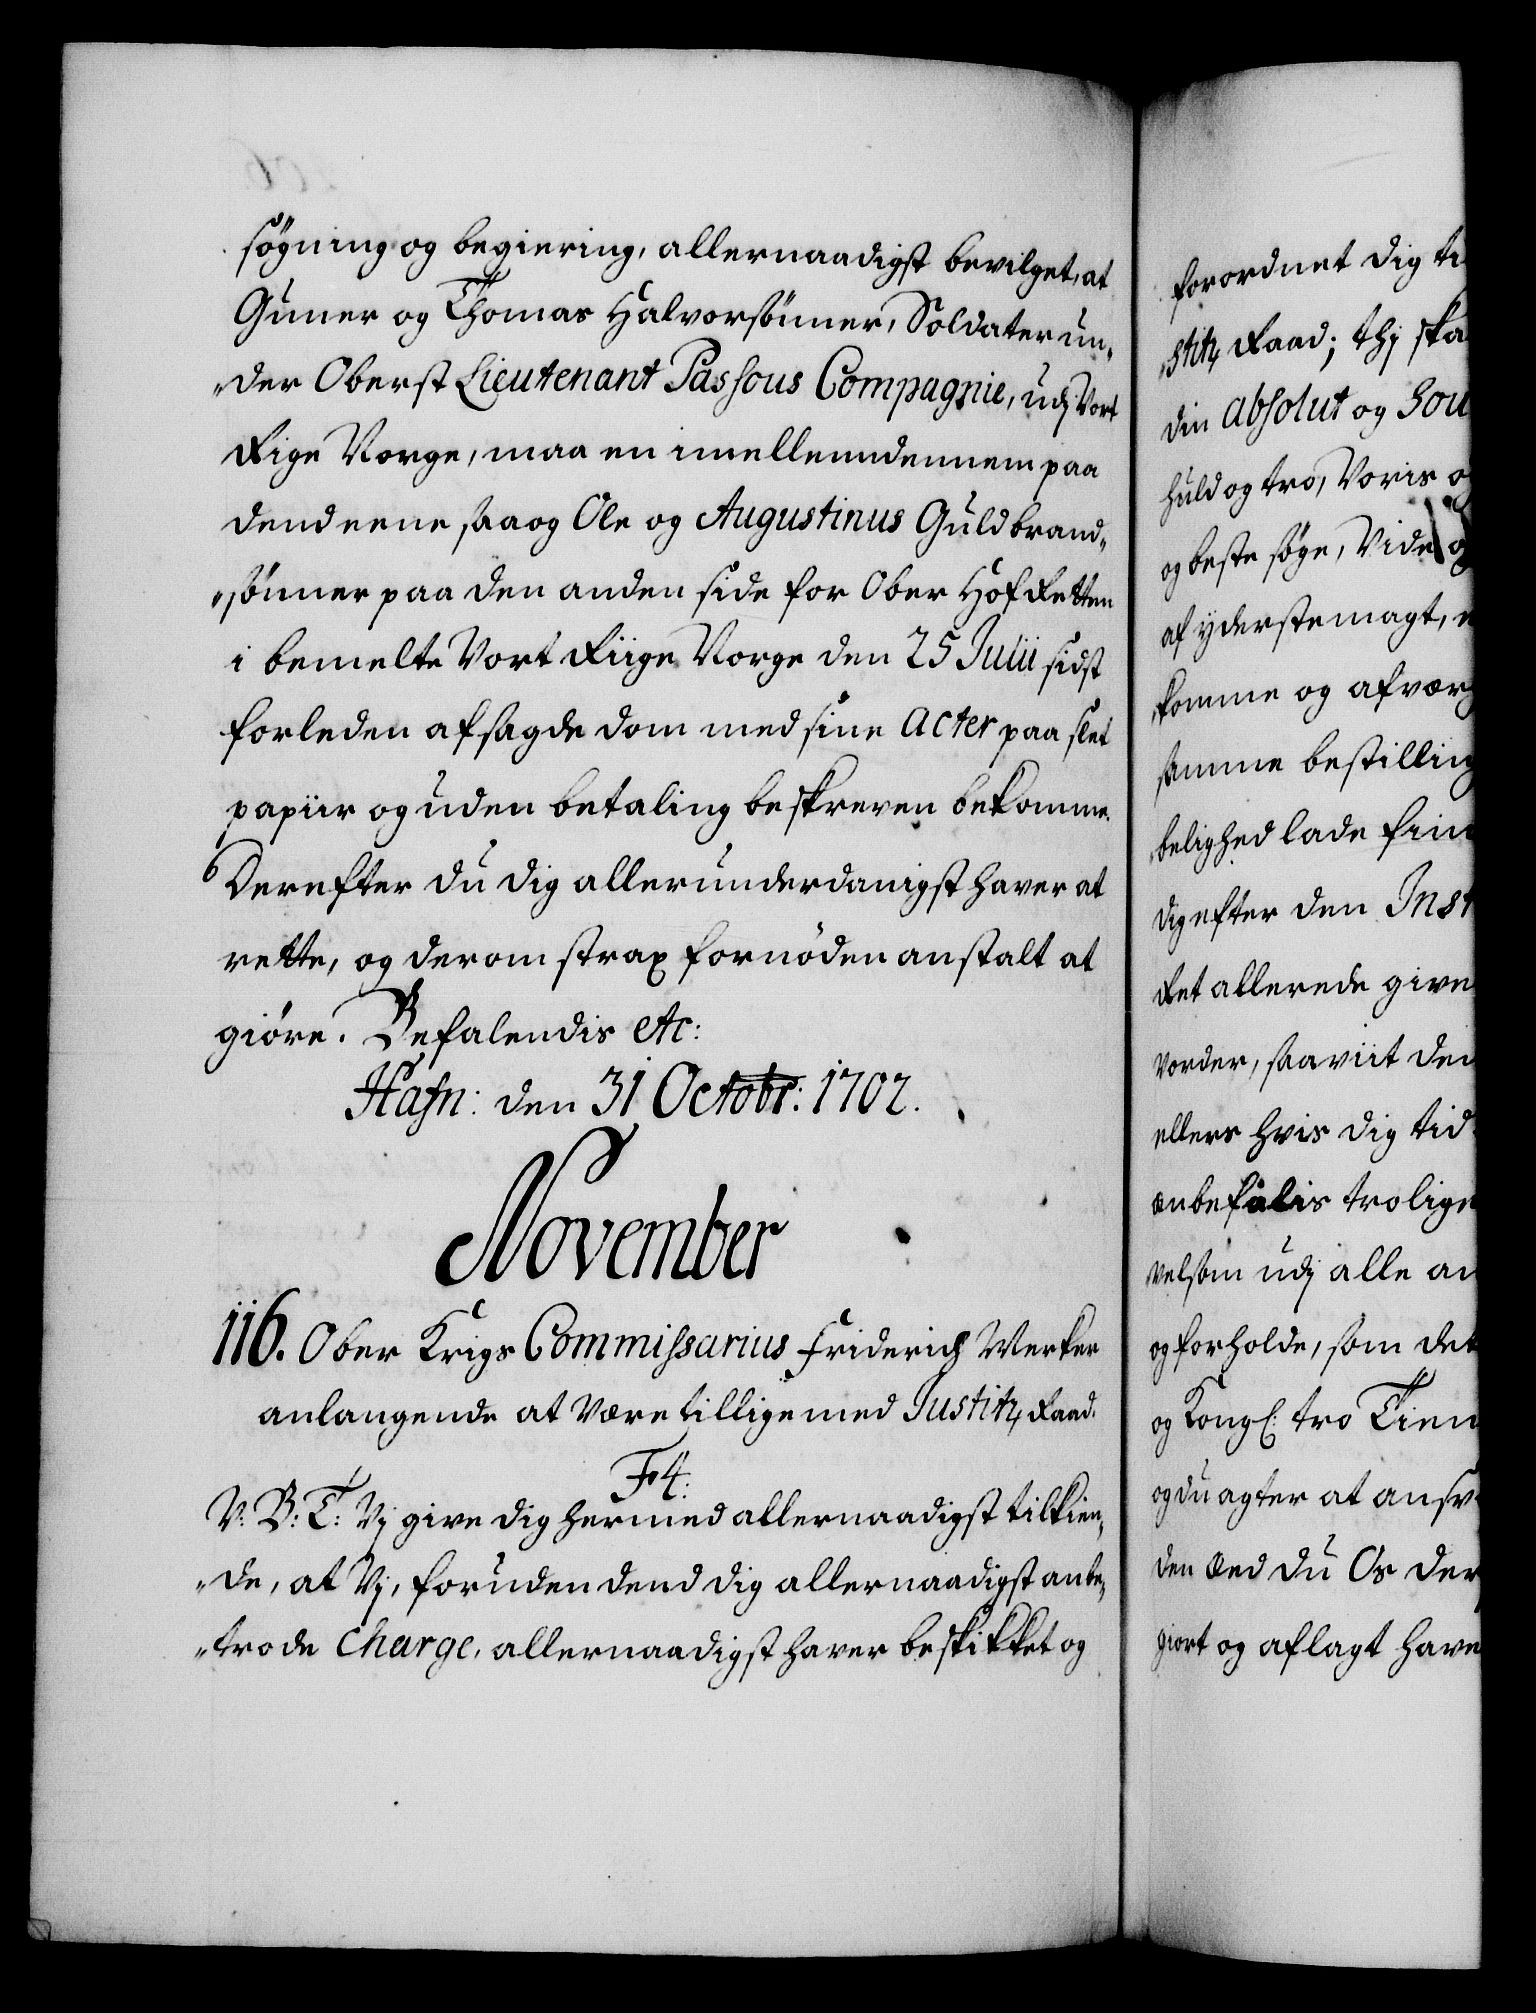 søgning og begiering, allernaadigst bevilget, at
Guner og Thomas Halvorsønner, Soldater un„
„der Oberst Lieutenant Passous Compagnie, udj Vort
Rige Norge, maa en imellemdennem paa
dend eene saa og Ole og Augustinus Guldbrand„
„sønner paa den anden side for Ober Hof Retten
i bemelte Vort Riige Norge den 25 Julii sidst
forleden afsagde dom med sine Acter paa slet
papiir og uden betaling beskreven bekomme.
Derefter du dig allerunderdanigst haver at
rette, og derom strax fornöden anstalt at
giöre. Befalendis etc:
Hafn: den 31 Octobr: 1702.
November
116. Ober Krigs Commissarius Friderich Werker
anlangende at være tillige med Justitz Raad.
F4:
V: B: T: Vj give dig hermed allernaadigst tilkien„
„de, at Vj, foruden dend dig allernaadigst anbe„
„trode Charge, allernaadigst haver beskikket og
forordnet dig ti
„stitz Raad; thj ska
din absolut og Sou
huld og tro, Voris o
og beste søge, Vide o
af yderste magt,
komme og afverg
samme bestilling
„belighed lade fin
dig efter den Inst
Ret allerede give
vorder, saa viit den
ellers hvis dig tid
anbefalis trolige
velsom udj alle an
og forholde, som det
og Kongl: tro Tien
og du agter at ansv
den Eed du Os der
giort og aflagt have